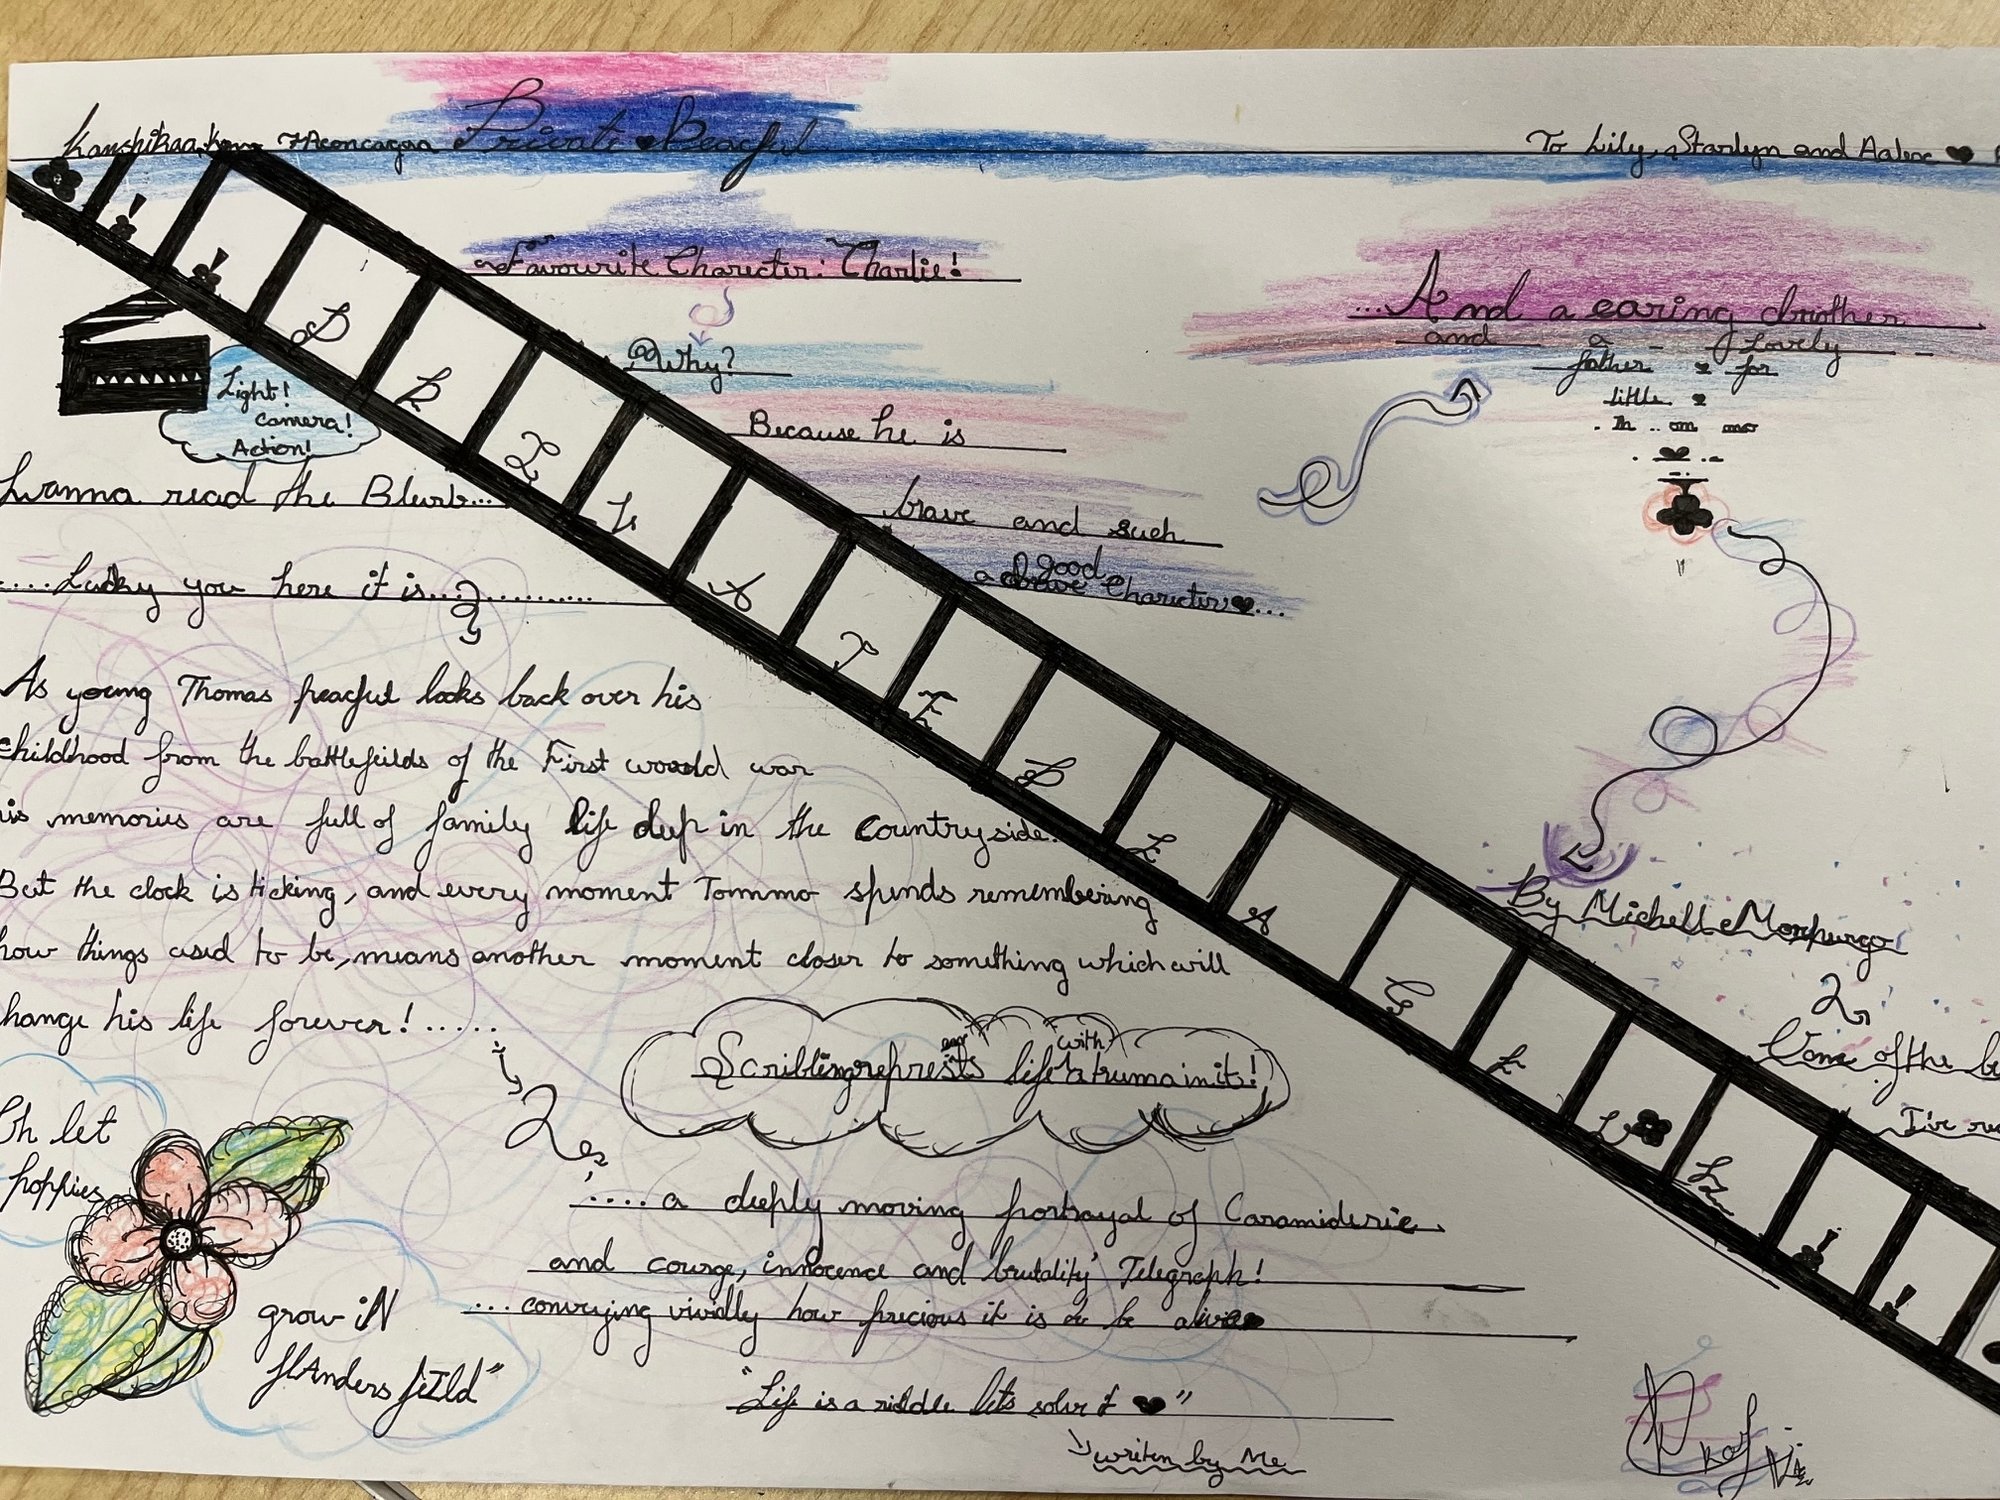 Private Peacful
To Lily, Starlyn and Aalene
Favourite Charecter: Charlie!
Why?
Because he is
brave and such
a good Charecter...
...And a caring brother
and a lovely
father for
little
Light!
Camera!
Action!
wanna read the Blurb...
....Lucky you here it is...............
As young Thomas peacful looks back over his
childhood from the battlefeilds of the First woorld war
his memories are full of family life deep in the Countryside.
But the clock is ticking, and every moment Tommo spends remembering
how things used to be, means another moment closer to something which will
change his life forever!.....
Scribling represts life with a huma in it!
Oh let
poppies
grow iN
flAnders feIld"
'....a deeply moving portrayal of Caramiderie
and courge, innocence and brutality' Telegraph!
...conveying vividly how precious it is to be alive
"Life is a riddle lets solve it"
writen by Me
By Michell Morpurgo
one of the be
I've re